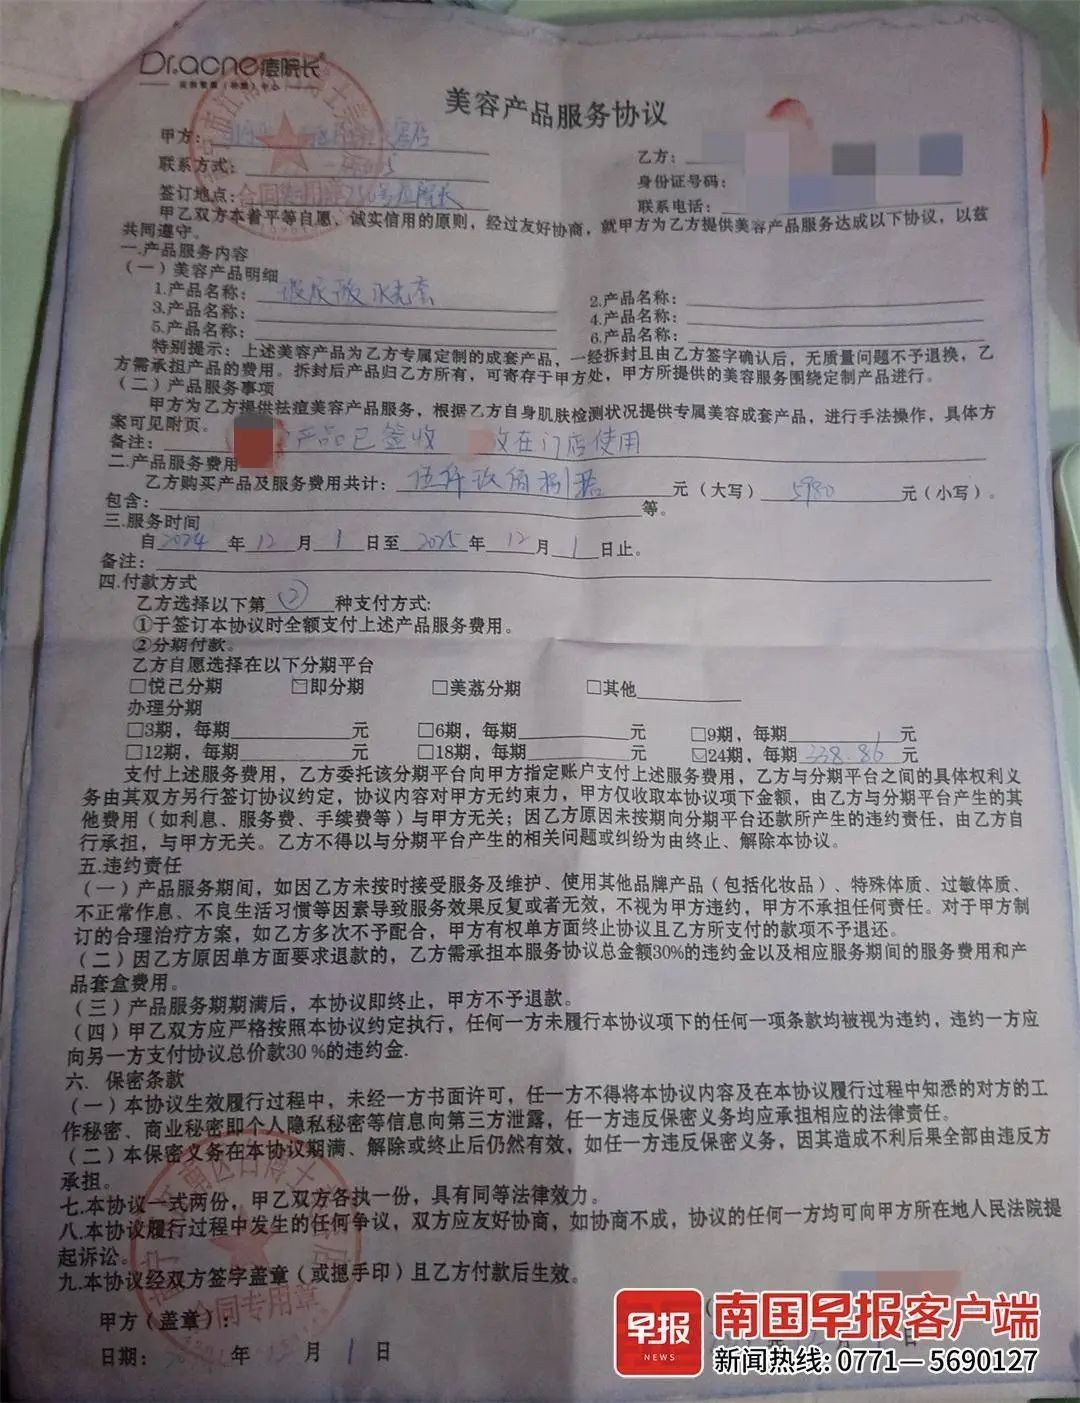 Dr.acne痘院长
美容产品服务协议
甲方：
乙方：
联系方式：
身份证号码：
签订地点：
联系电话：
合同专用章
甲乙双方本着平等自愿、诚实信用的原则，经过友好协商，就甲方为乙方提供美容产品服务达成以下协议，以兹
共同遵守。
一.产品服务内容
（一）美容产品明细
1.产品名称：玻尿酸水光套
2.产品名称：
3.产品名称：
4.产品名称：
5.产品名称：
6.产品名称：
特别提示：上述美容产品为乙方专属定制的成套产品，一经拆封且由乙方签字确认后，无质量问题不予退换，乙
方需承担产品的费用。拆封后产品归乙方所有，可寄存于甲方处，甲方所提供的美容服务围绕定制产品进行。
（二）产品服务事项
甲方为乙方提供祛痘美容产品服务，根据乙方自身肌肤检测状况提供专属美容成套产品，进行手法操作，具体方
案可见附页。
备注：产品已签收 放在门店使用
二.产品服务费用
乙方购买产品及服务费用共计：伍仟玖佰捌拾元（大写）5980元（小写）。
包含：等。
三.服务时间
自2024年12月1日至2025年12月1日止。
备注：
四.付款方式
乙方选择以下第②种支付方式:
①于签订本协议时全额支付上述产品服务费用。
②分期付款。
乙方自愿选择在以下分期平台
□悦己分期 ☑即分期 □美荔分期 □其他
办理分期
□3期，每期 元 □6期，每期 元 □9期，每期 元
□12期，每期 元 □18期，每期 元 ☑24期，每期338.86元
支付上述服务费用，乙方委托该分期平台向甲方指定账户支付上述服务费用，乙方与分期平台之间的具体权利义
务由其双方另行签订协议约定，协议内容对甲方无约束力，甲方仅收取本协议项下金额，由乙方与分期平台产生的其
他费用（如利息、服务费、手续费等）与甲方无关；因乙方原因未按期向分期平台还款所产生的违约责任，由乙方自
行承担，与甲方无关。乙方不得以与分期平台产生的相关问题或纠纷为由终止、解除本协议。
五.违约责任
（一）产品服务期间，如因乙方未按时接受服务及维护、使用其他品牌产品（包括化妆品）、特殊体质、过敏体质、
不正常作息、不良生活习惯等因素导致服务效果反复或者无效，不视为甲方违约，甲方不承担任何责任。对于甲方制
订的合理治疗方案，如乙方多次不予配合，甲方有权单方面终止协议且乙方所支付的款项不予退还。
（二）因乙方原因单方面要求退款的，乙方需承担本服务协议总金额30%的违约金以及相应服务期间的服务费用和产
品套盒费用。
（三）产品服务期期满后，本协议即终止，甲方不予退款。
（四）甲乙双方应严格按照本协议约定执行，任何一方未履行本协议项下的任何一项条款均被视为违约，违约一方应
向另一方支付协议总价款30%的违约金.
六. 保密条款
（一）本协议生效履行过程中，未经一方书面许可，任一方不得将本协议内容及在本协议履行过程中知悉的对方的工
作秘密、商业秘密即个人隐私秘密等信息向第三方泄露，任一方违反保密义务均应承担相应的法律责任。
（二）本保密义务在本协议期满、解除或终止后仍然有效，如任一方违反保密义务，因其造成不利后果全部由违反方
承担。
七.本协议一式两份，甲乙双方各执一份，具有同等法律效力。
八.本协议履行过程中发生的任何争议，双方应友好协商，如协商不成，协议的任何一方均可向甲方所在地人民法院提
起诉讼。
九.本协议经双方签字盖章（或摁手印）且乙方付款后生效。
合同专用章
甲方（盖章）：
日期：2024年12月1日
早报
NEWS
南国早报客户端
新闻热线: 0771—5690127